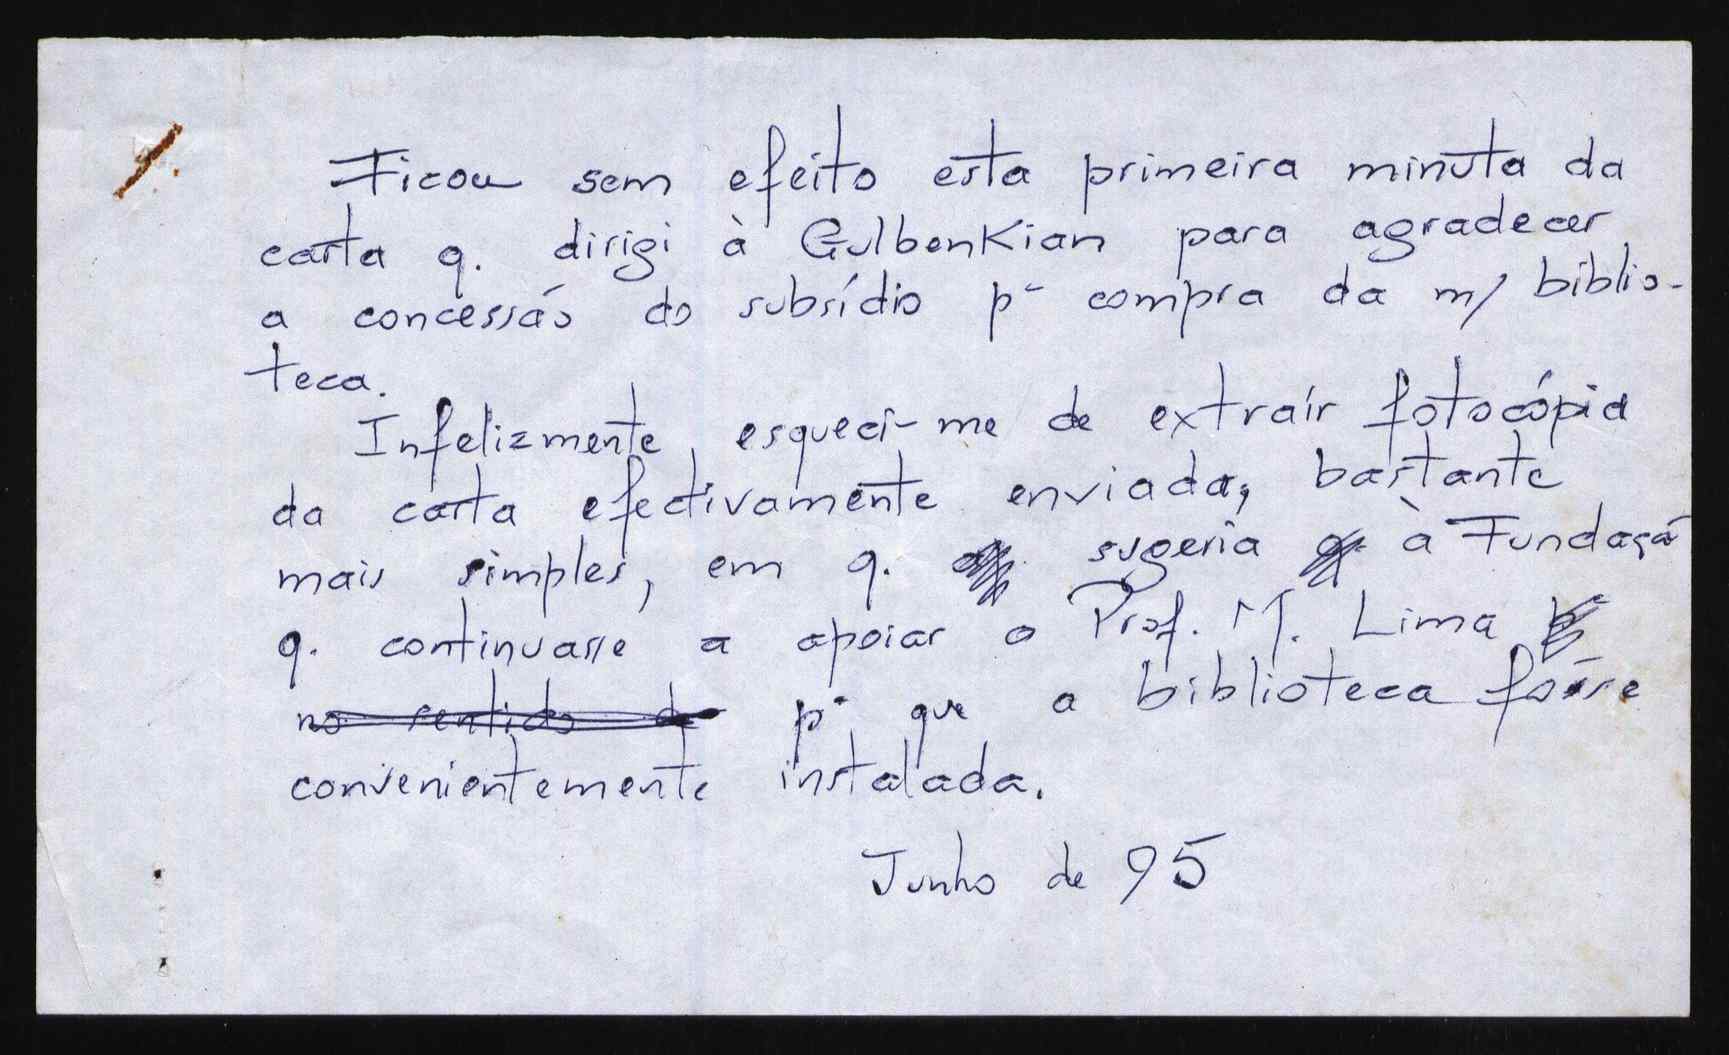 Ficou sem efeito esta primeira minuta da
carta q. dirigi à Gulbenkian para agradecer
a concessão do subsídio pª compra da m/ biblio-
teca.
Infelizmente, esqueci-me de extraír fotocópia
da carta efectivamente enviada, bastante
mais simples, em q. sugeria à Fundaçã
q. continuasse a apoiar o Prof. M. Lima
no sentido de pª que a biblioteca fôsse
convenientemente instalada.
Junho de 95